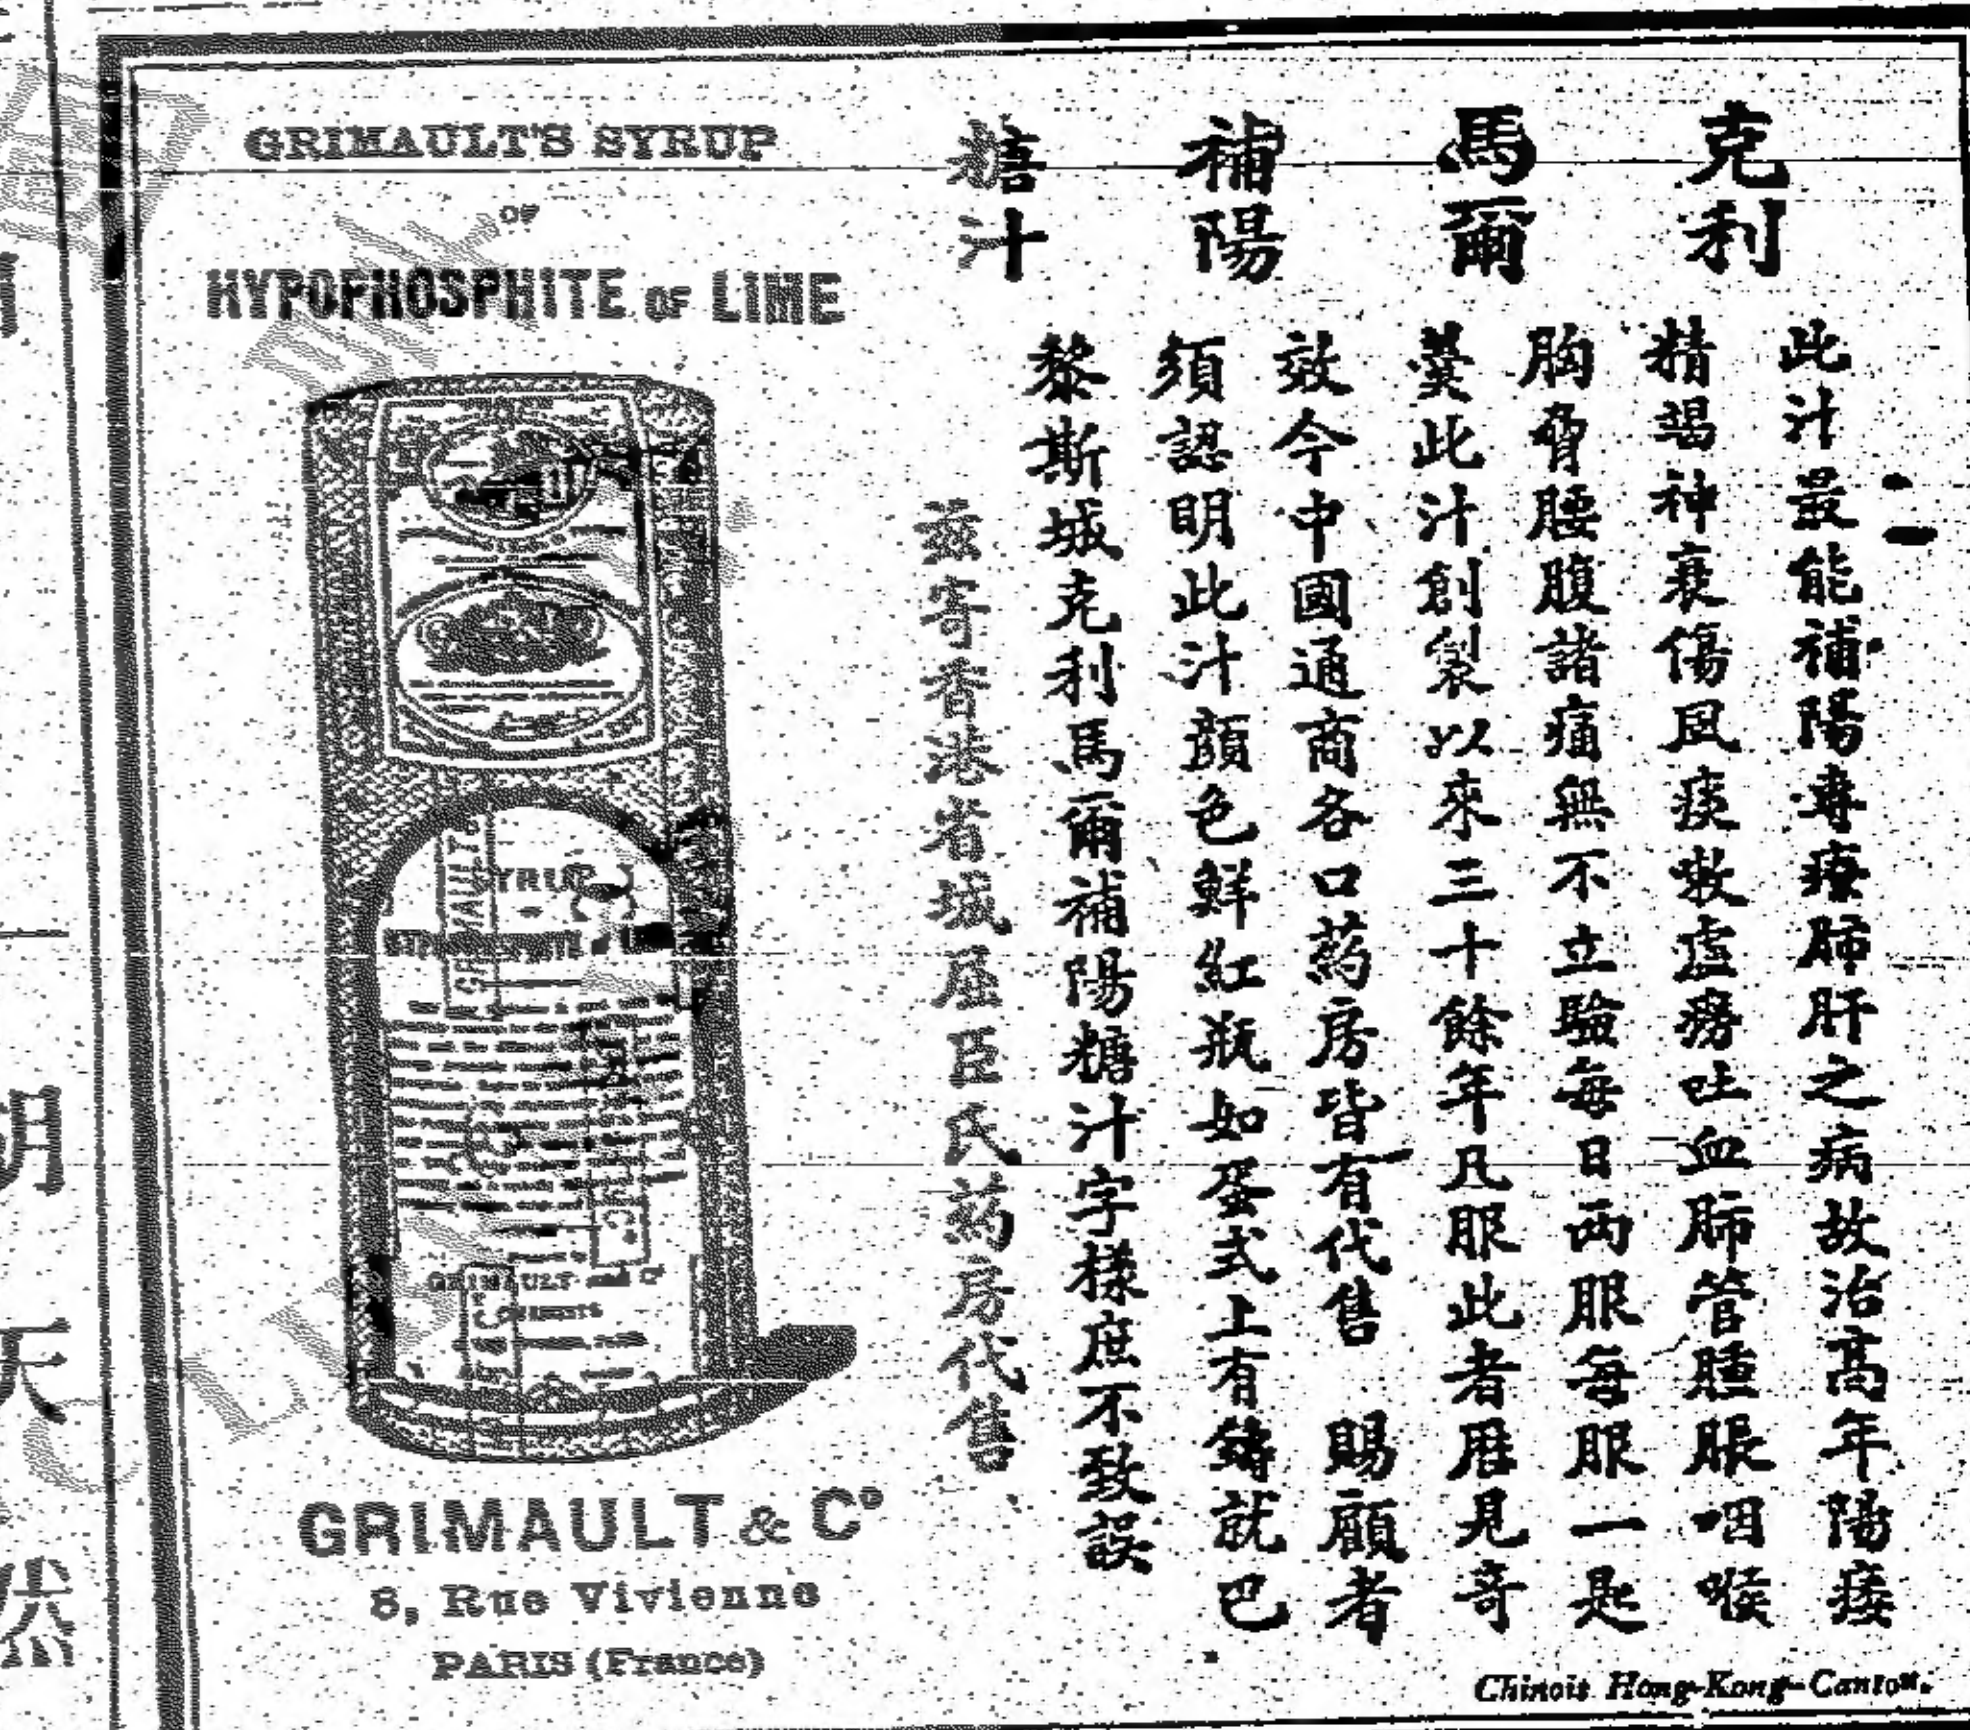 克利
馬爾
補陽
糖汁
此汁最能補陽專療肺肝之病故治高年陽痿
精竭神衰傷風痰嗽虛癆吐血肺管腫脹咽喉
胸脅腰腹諸痛無不立驗每日兩服每服一匙
羹此汁創製以來三十餘年凡服此者歷見奇
效今中國通商各口葯房皆有代售 賜顧者
須認明此汁顏色鮮紅瓶如蛋式上有鑄就巴
黎斯城克利馬爾補陽糖汁字樣庶不致誤
茲寄香港省城屈臣氏葯房代售
GRIMAULT'S SYRUP
OF
HYPOPHOSPHITE OF LIME
SYRUP
GRIMAULT
GRIMAULT and Cº
GRIMAULT & Cº
8, Rue Vivienne
PARIS (France)
Chinois Hong-Kong-Canton.
明
天
然